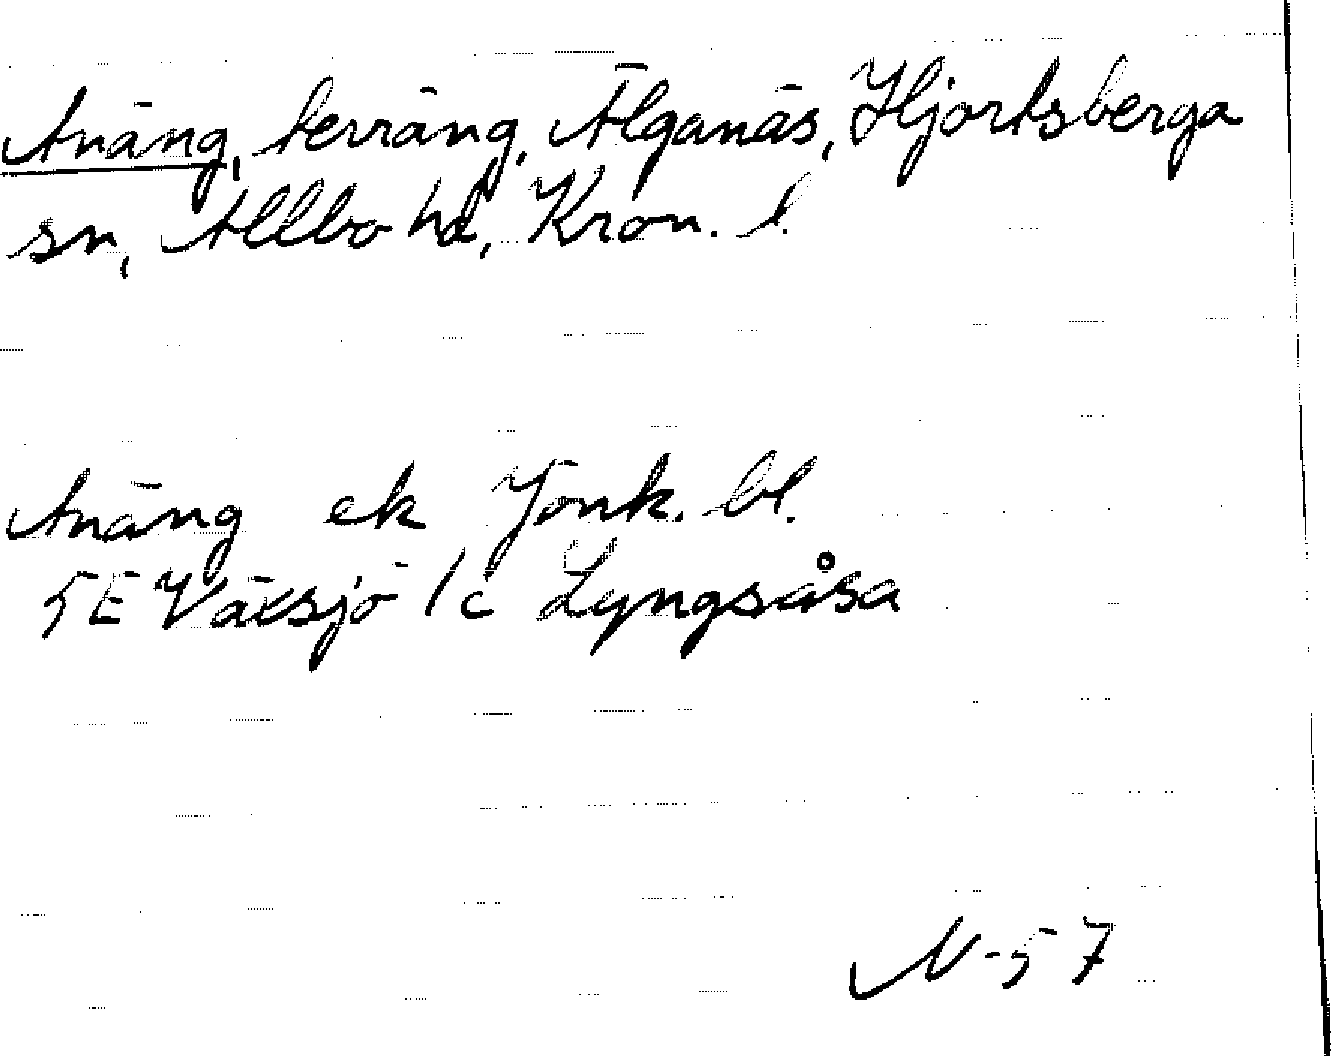 Anäng, terräng, Älganäs, Hjortsberga
sn, Allbo hd, Kron. l.
Anäng ek Jönk. bl.
5E Växsjö 1c Lyngsåsa
N-57